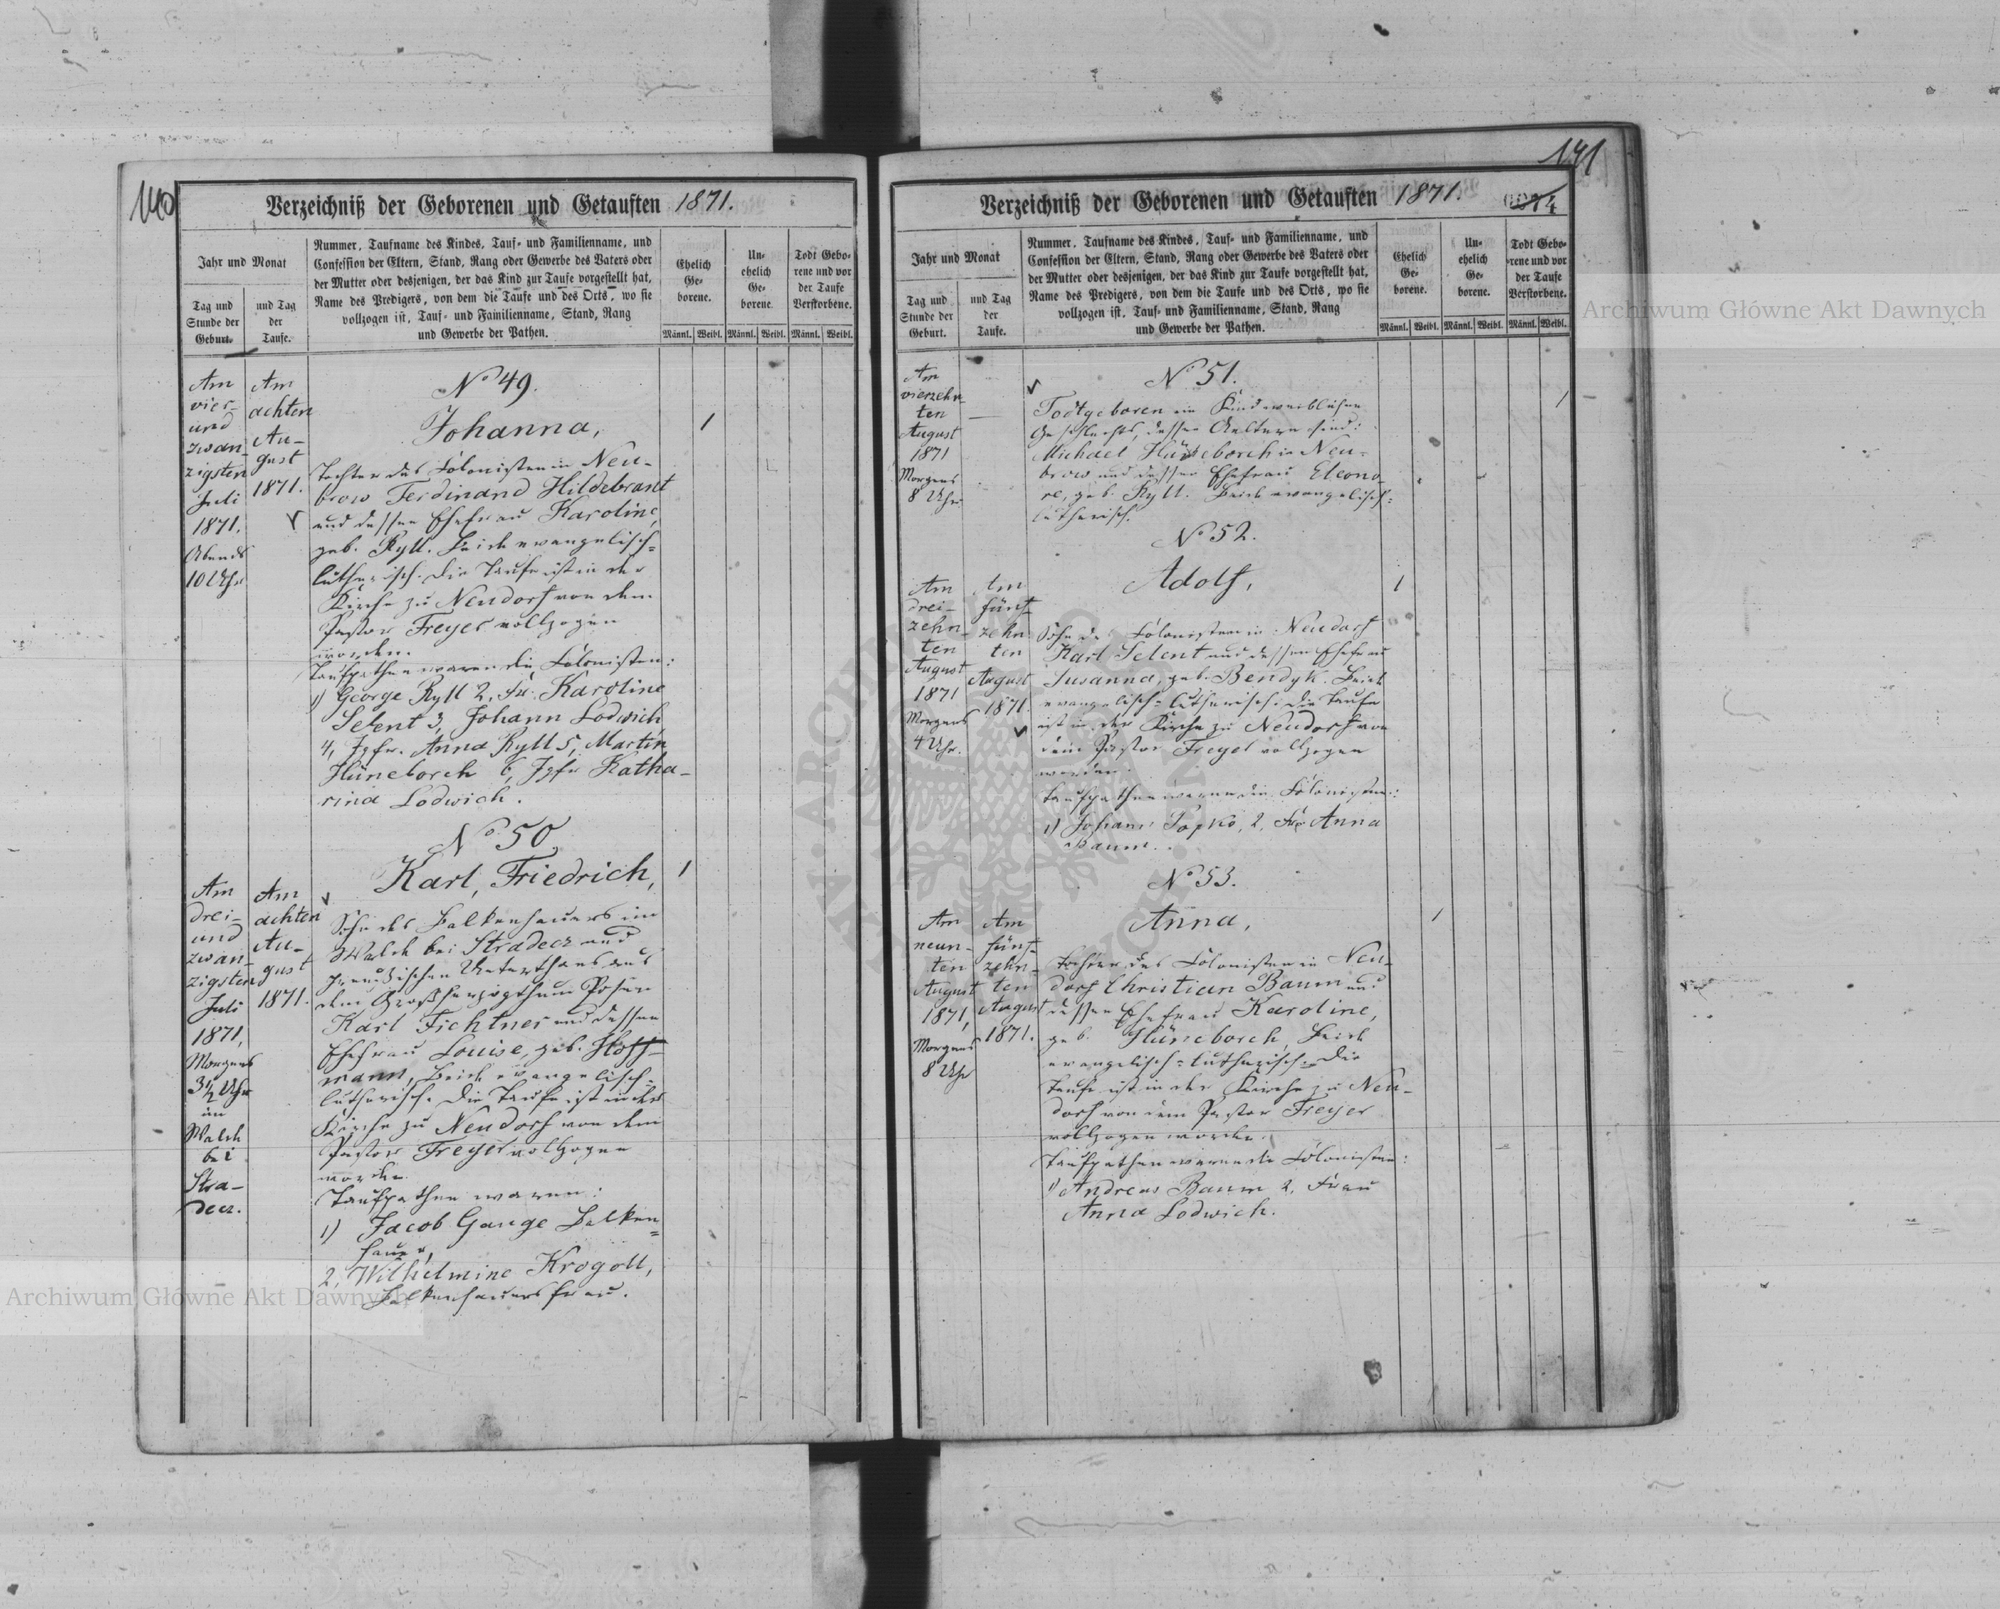 140
Verzeichniß der Geborenen und Getauften 1871.
Jahr und Monat
Tag und
Stunde der
Geburt.
und Tag
der
Taufe.
Nummer, Taufname des Kindes, Tauf- und Familienname, und
Confession der Eltern, Stand, Rang oder Gewerbe des Vaters oder
der Mutter oder desjenigen, der das Kind zur Taufe vorgestellt hat,
Name des Predigers, von dem die Taufe und des Orts, wo sie
vollzogen ist, Tauf- und Familienname, Stand, Rang
und Gewerbe der Pathen.
Ehelich
Ge-
borene.
Un-
ehelich
Ge-
borene.
Todt Gebo-
rene und vor
der Taufe
Verstorbene.
Männl. Weibl. Männl. Weibl. Männl. Weibl.
Am
vier-
und
zwan-
zigsten
Juli
1871.
Abends
10 Uhr
Am
achten
Au-
gust
1871.
No 49.
Johanna,
1
Tochter des Colonisten in Neu-
brow Ferdinand Hildebrant
und dessen Ehefrau Karoline,
geb. Ryll. Beide evangelisch-
lutherisch. Die Taufe ist in der
Kirche zu Neudorf von dem
Pastor Freyer vollzogen
worden.
Taufpathen waren die Colonisten:
1) George Ryll 2, Fr. Karoline
Selent 3, Johann Lodwich,
4, Jgfr. Anna Ryll 5, Martin
Hüneborch 6, Jgfr Katha-
rina Lodwich.
Am
drei-
und
zwan-
zigsten
Juli
1871,
Morgens
3½ Uhr
im
Walde
bei
Stra-
decz.
Am
achten
Au-
gust
1871.
No 50
Karl, Friedrich,
1
Sohn des Balkenhauers im
Walde bei Stradecz und
preußischen Unterthans aus
dem Großherzogthum Posen
Karl Fichtner und dessen
Ehefrau Louise, geb. Hoff-
mann, Beide evangelisch-
lutherisch. Die Taufe ist in der
Kirche zu Neudorf von dem
Pastor Freyer vollzogen
worden.
Taufpathen waren:
1) Jacob Gange Balken-
hauer,
2, Wilhelmine Krogoll,
Balkenhauersfrau.
141
Verzeichniß der Geborenen und Getauften 1871.
Jahr und Monat
Tag und
Stunde der
Geburt.
und Tag
der
Taufe.
Nummer, Taufname des Kindes, Tauf- und Familienname, und
Confession der Eltern, Stand, Rang oder Gewerbe des Vaters oder
der Mutter oder desjenigen, der das Kind zur Taufe vorgestellt hat,
Name des Predigers, von dem die Taufe und des Orts, wo sie
vollzogen ist, Tauf- und Familienname, Stand, Rang
und Gewerbe der Pathen.
Ehelich
Ge-
borene.
Un-
ehelich
Ge-
borene.
Todt Gebo-
rene und vor
der Taufe
Verstorbene.
Männl. Weibl. Männl. Weibl. Männl. Weibl.
Am
vierzehn-
ten
August
1871
Morgens
8 Uhr
—
No 51.
1
Todtgeboren ein Kind weiblichen
Geschlechts, dessen Aeltern sind:
Michael Hüneborch in Neu-
brow und dessen Ehefrau Eleono-
re, geb. Ryll. Beide evangelisch-
lutherisch.
Am
drei-
zehn-
ten
August
1871
Morgens
4 Uhr.
Am
fünf-
zehn-
ten
August
1871.
No 52.
Adolf,
1
Sohn des Colonisten in Neudorf
Karl Selent und dessen Ehefrau
Susanna, geb. Bendyk. Beide
evangelisch-lutherisch. Die Taufe
ist in der Kirche zu Neudorf von
dem Pastor Freyer vollzogen
worden.
Taufpathen waren die Colonisten:
1) Johann Popko, 2, Fr Anna
Baum.
Am
neun-
ten
August
1871,
Morgens
8 Uhr
Am
fünf-
zehn-
ten
August
1871.
No 53.
Anna,
1
Tochter des Colonisten in Neu-
dorf Christian Baum und
dessen Ehefrau Karoline,
geb. Hüneborch, Beide
evangelisch-lutherisch. Die
Taufe ist in der Kirche zu Neu-
dorf von dem Pastor Freyer
vollzogen worden.
Taufpathen waren die Colonisten:
1) Andreas Baum 2, Frau
Anna Lodwich.
Archiwum Główne Akt Dawnych
Archiwum Główne Akt Dawnych